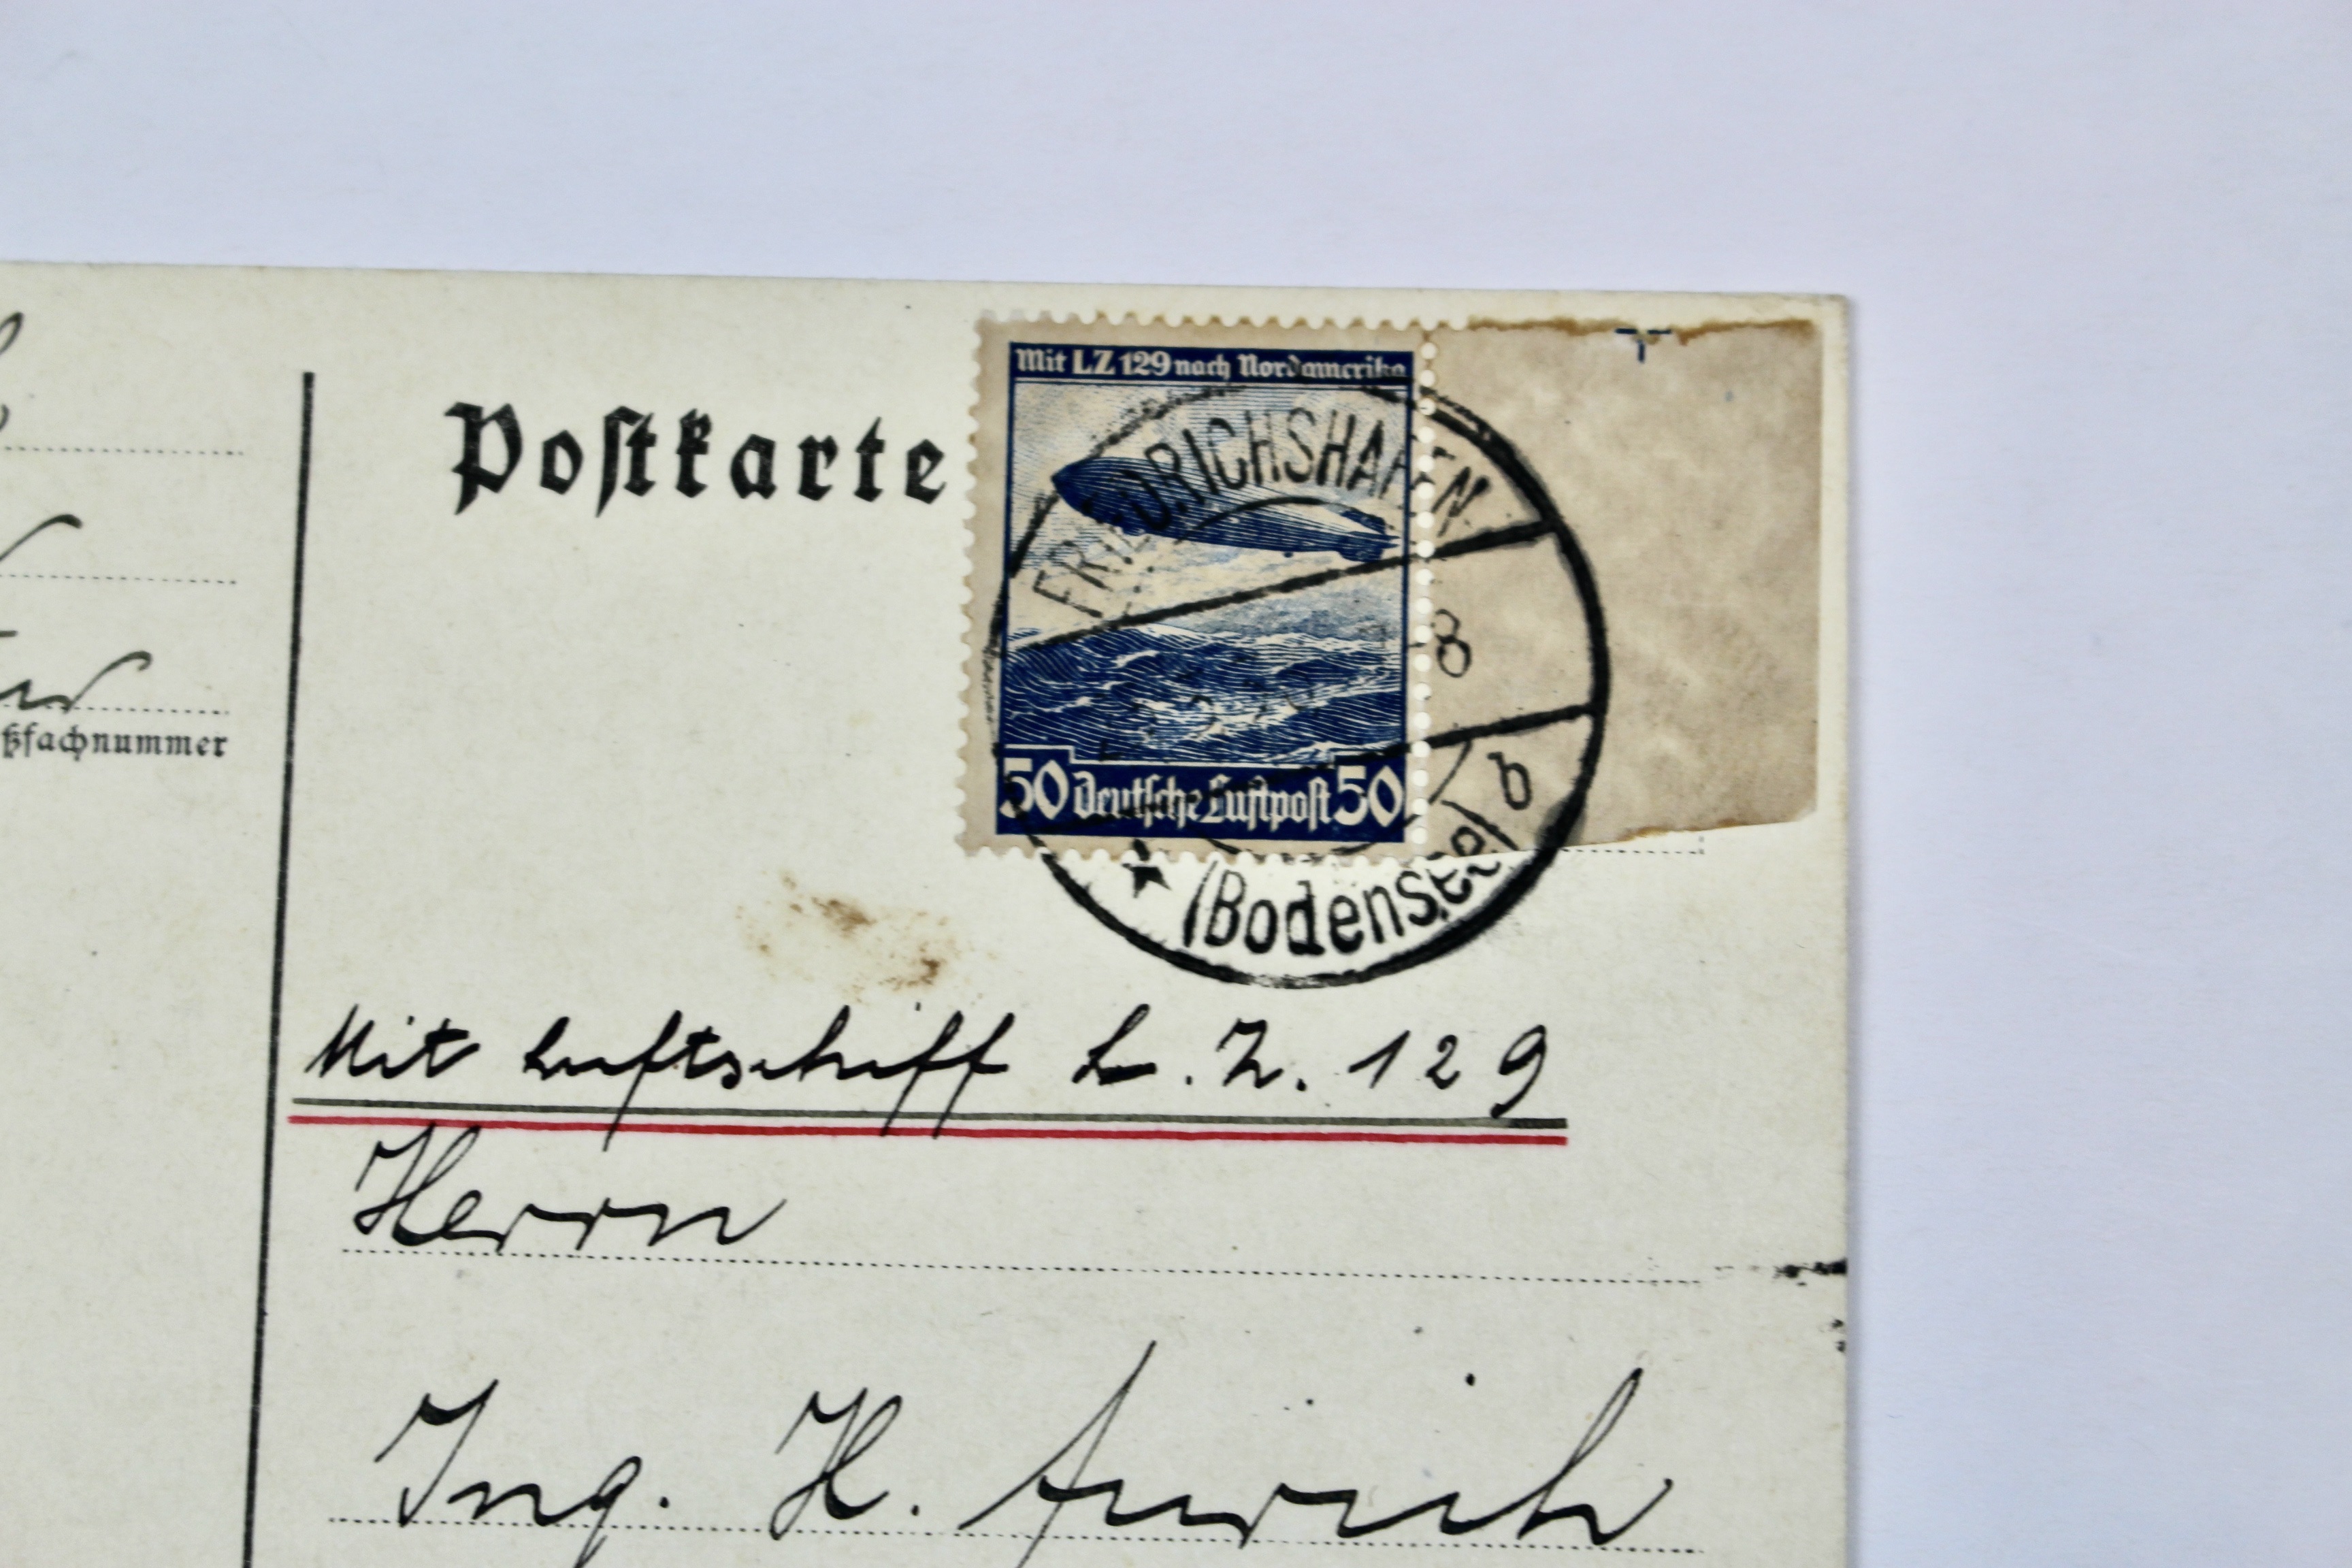 Postkarte
Mit LZ 129 nach Nordamerika
FRIEDRICHSHAFEN
-8
b
50 Deutsche Luftpost 50
(Bodensee)
ßfachnummer
Mit Luftschiff L. Z. 129
Herrn
Ing. H. Aurich